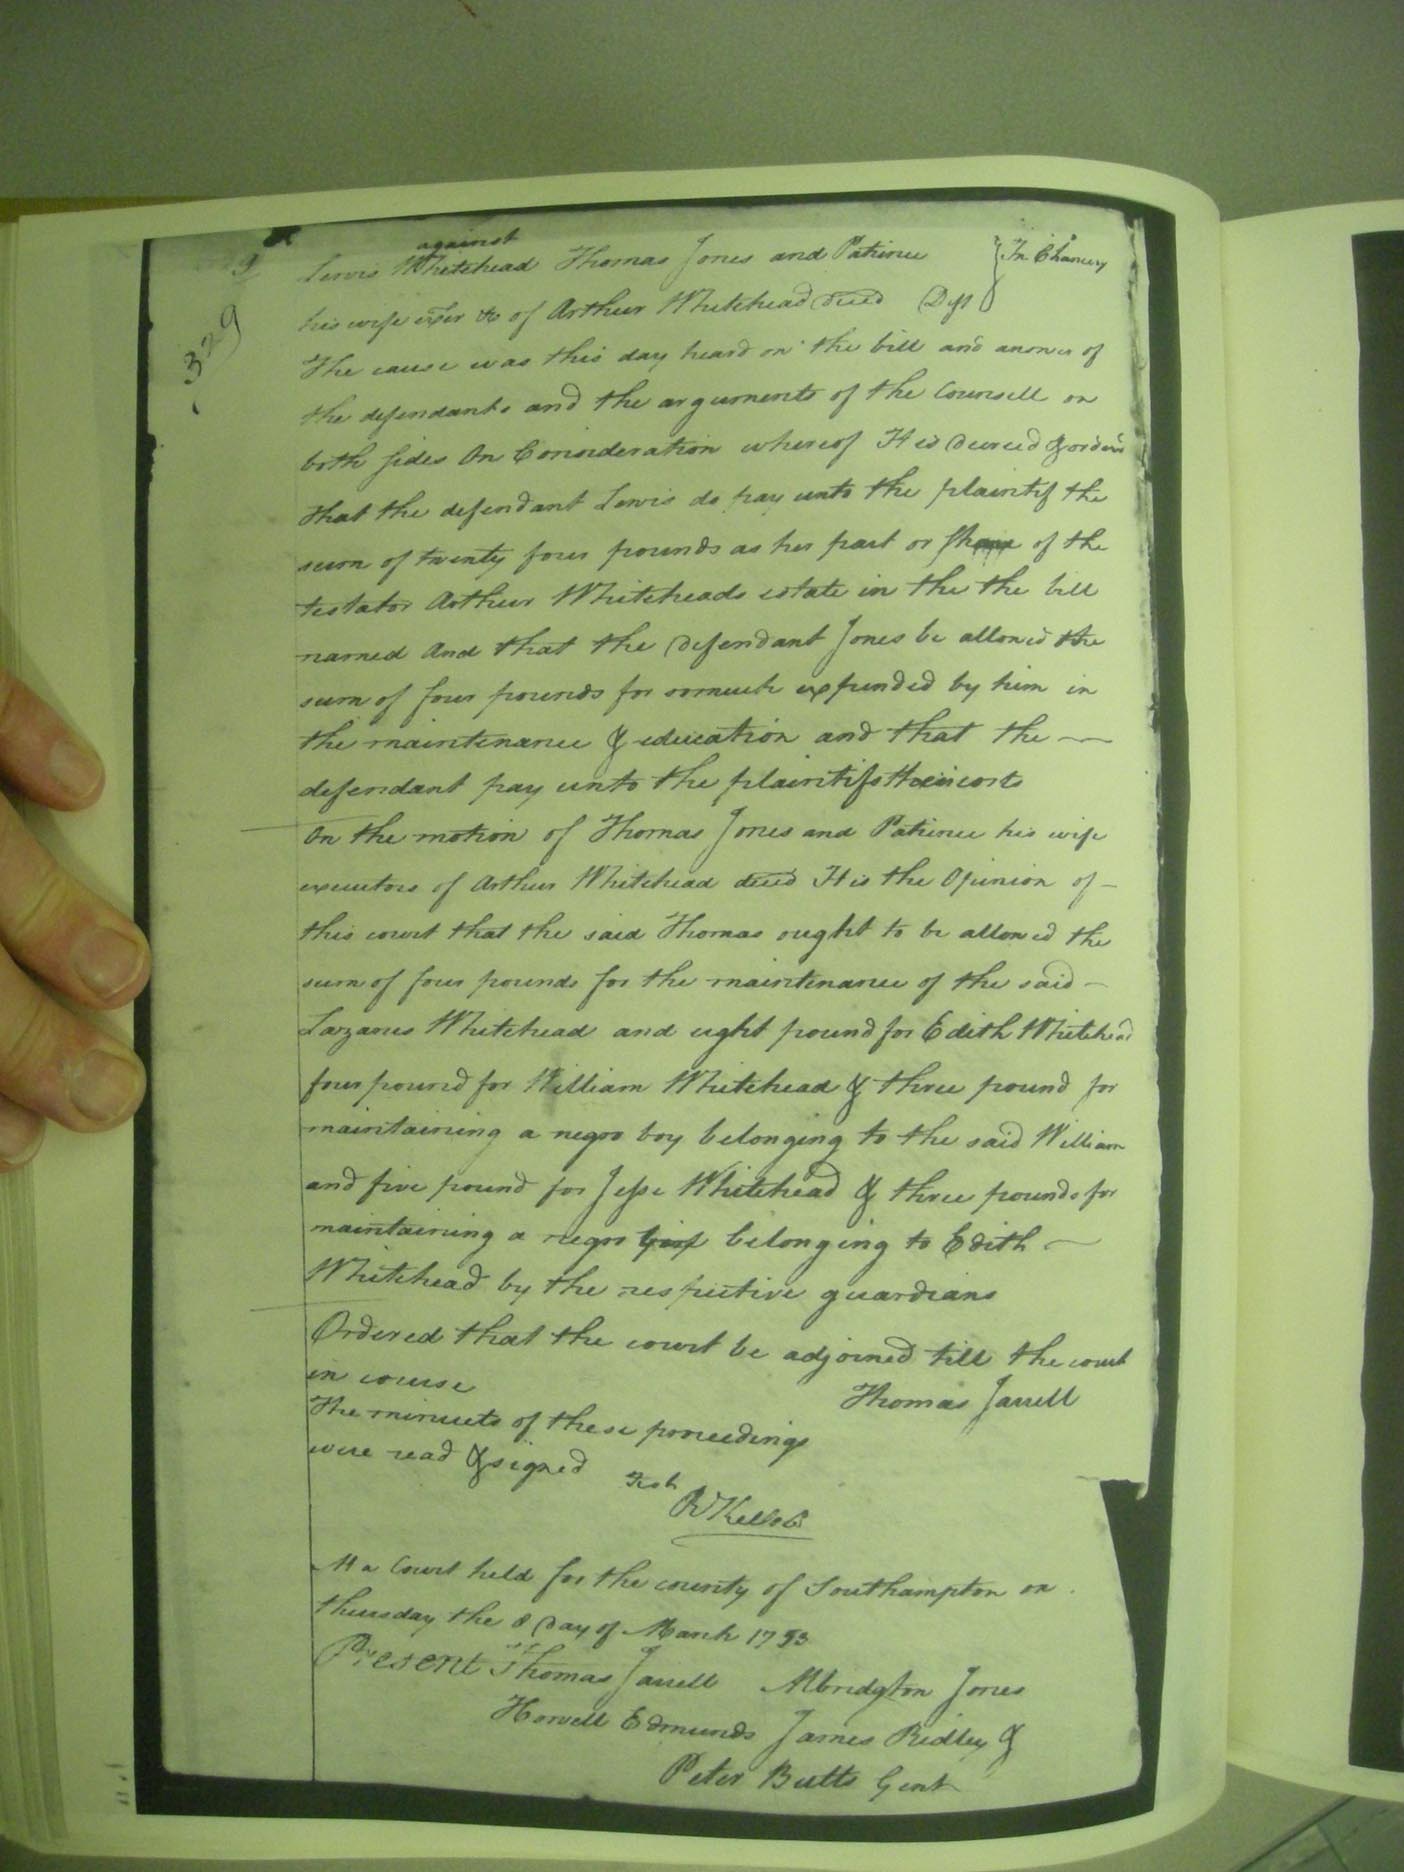 329
against
Lewis Whitehead Thomas Jones and Patience
his wife exer &c of Arthur Whitehead decd Deft
In Chancery
The cause was this day heard on the bill and answer of
the defendants and the arguments of the Counsell on
both sides On Consideration whereof It is decreed & orderd
that the defendant Lewis do pay unto the plaintif the
sum of twenty four pounds as her part or share of the
testator Arthur Whiteheads estate in the the bill
named And that the defendant Jones be allowed the
sum of four pounds for somuch expended by him in
the maintenance & education and that the
defendant pay unto the plaintifs their costs
On the motion of Thomas Jones and Patience his wife
executors of Arthur Whitehead decd It is the Opinion of
this court that the said Thomas ought to be allowed the
sum of four pounds for the maintenance of the said
Lazarus Whitehead and eight pound for Edith Whitehead
four pound for William Whitehead & three pound for
maintaining a negro boy belonging to the said William
and five pound for Jesse Whitehead & three pounds for
maintaining a negro girl belonging to Edith
Whitehead by the respective guardians
Ordered that the court be adjoined till the court
in course
Thomas Jarrell
The minuets of these proceedings
were read & signed
Test
R Kello Cl
At a Court held for the county of Southampton on
thursday the 8 Day of March 1753
Present Thomas Jarrell Albridgton Jones
Howell Edmunds James Ridley &
Peter Butts Gent